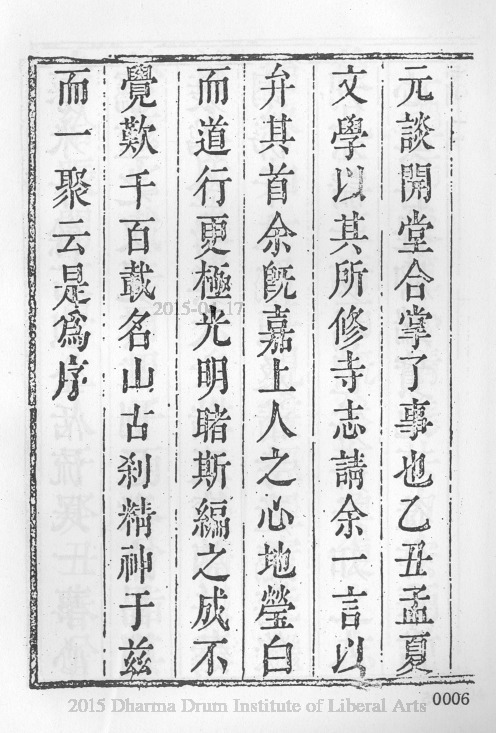 元談開堂合掌了事也乙丑孟夏
文學以其所修寺志請余一言以
弁其首余既嘉上人之心地瑩白
而道行更極光明睹斯編之成不
覺歎千百載名山古剎精神于茲
而一聚云是爲序
2015-04-17
2015 Dharma Drum Institute of Liberal Arts
0006